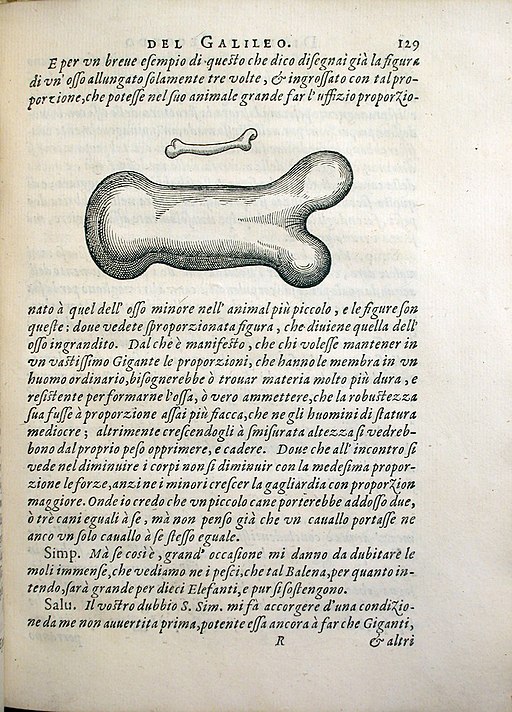 DEL GALILEO. 129
E per vn breue esempio di questo che dico disegnai già la figura
di vn' osso allungato solamente tre volte, & ingrossato con tal pro-
porzione, che potesse nel suo animale grande far l'uffizio proporzio-
nato à quel dell' osso minore nell' animal più piccolo, e le figure son
queste: doue vedete sproporzionata figura, che diuiene quella dell'
osso ingrandito. Dal che è manifesto, che chi volesse mantener in
vn vastissimo Gigante le proporzioni, che hanno le membra in vn
huomo ordinario, bisognerebbe ò trouar materia molto più dura, e
resistente per formarne l'ossa, ò vero ammettere, che la robustezza
sua fusse à proporzione assai più fiacca, che ne gli huomini di statura
mediocre; altrimente crescendogli à smisurata altezza si vedreb-
bono dal proprio peso opprimere, e cadere. Doue che all' incontro si
vede nel diminuire i corpi non si diminuir con la medesima propor-
zione le forze, anzi ne i minori crescer la gagliardia con proporzion
maggiore. Onde io credo che vn piccolo cane porterebbe addosso due,
ò tre cani eguali à se, mà non penso già che vn cauallo portasse ne
anco vn solo cauallo à se stesso eguale.
Simp. Mà se così è, grand' occasione mi danno da dubitare le
moli immense, che vediamo ne i pesci, che tal Balena, per quanto in-
tendo, sarà grande per dieci Elefanti, e pur si sostengono.
Salu. Il vostro dubbio S. Sim. mi fà accorgere d'una condizio-
ne da me non auuertita prima, potente essa ancora à far che Giganti,
R & altri